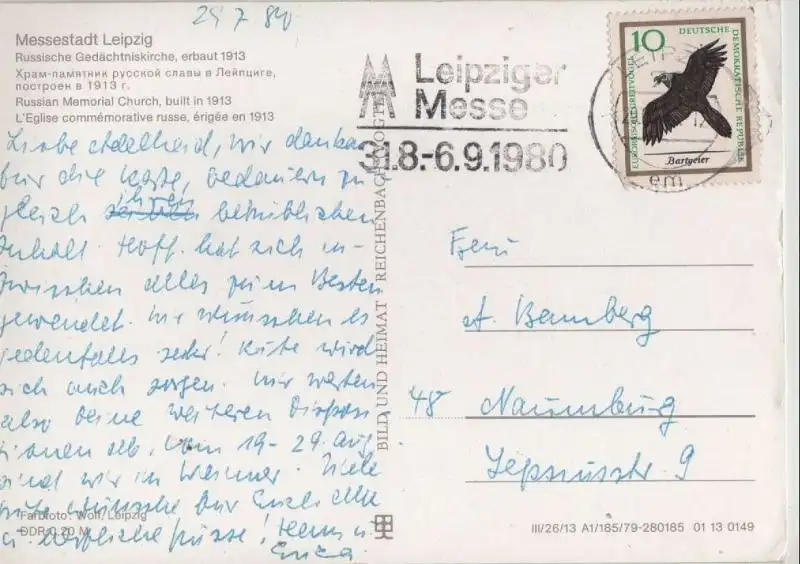 29 7 80
Messestadt Leipzig
Russische Gedächtniskirche, erbaut 1913
Храм-памятник русской славы в Лейпциге,
построен в 1913 г.
Russian Memorial Church, built in 1913
L'Eglise commémorative russe, érigée en 1913
Liebe Adelheid, wir danken
für die Karte, bedauern zu
gleich ihren betrüblichen
Inhalt. Hoff. hat sich in-
zwischen alles zum Besten
gewendet. Wir wünschen es
jedenfalls sehr! Käte wird
sich auch sorgen. Wir warten
also deine weiteren Disposi
tionen ab. Vom 19-29. Aug.
sind wir in Weimar. Viele
gute Wünsche für Euch alle
u. herzliche Grüsse! Henry u.
Erica
Farbfoto: Wolf, Leipzig
DDR 0,20 M
BILD UND HEIMAT REICHENBACH
Leipziger
Messe
31.8.-6.9.1980
10
DEUTSCHE
DEMOKRATISCHE REPUBLIK
Bartgeier
em
Frau
A. Bamberg
48 Naumburg
Lepsiusstr 9
III/26/13 A1/185/79-280185 01 13 0149